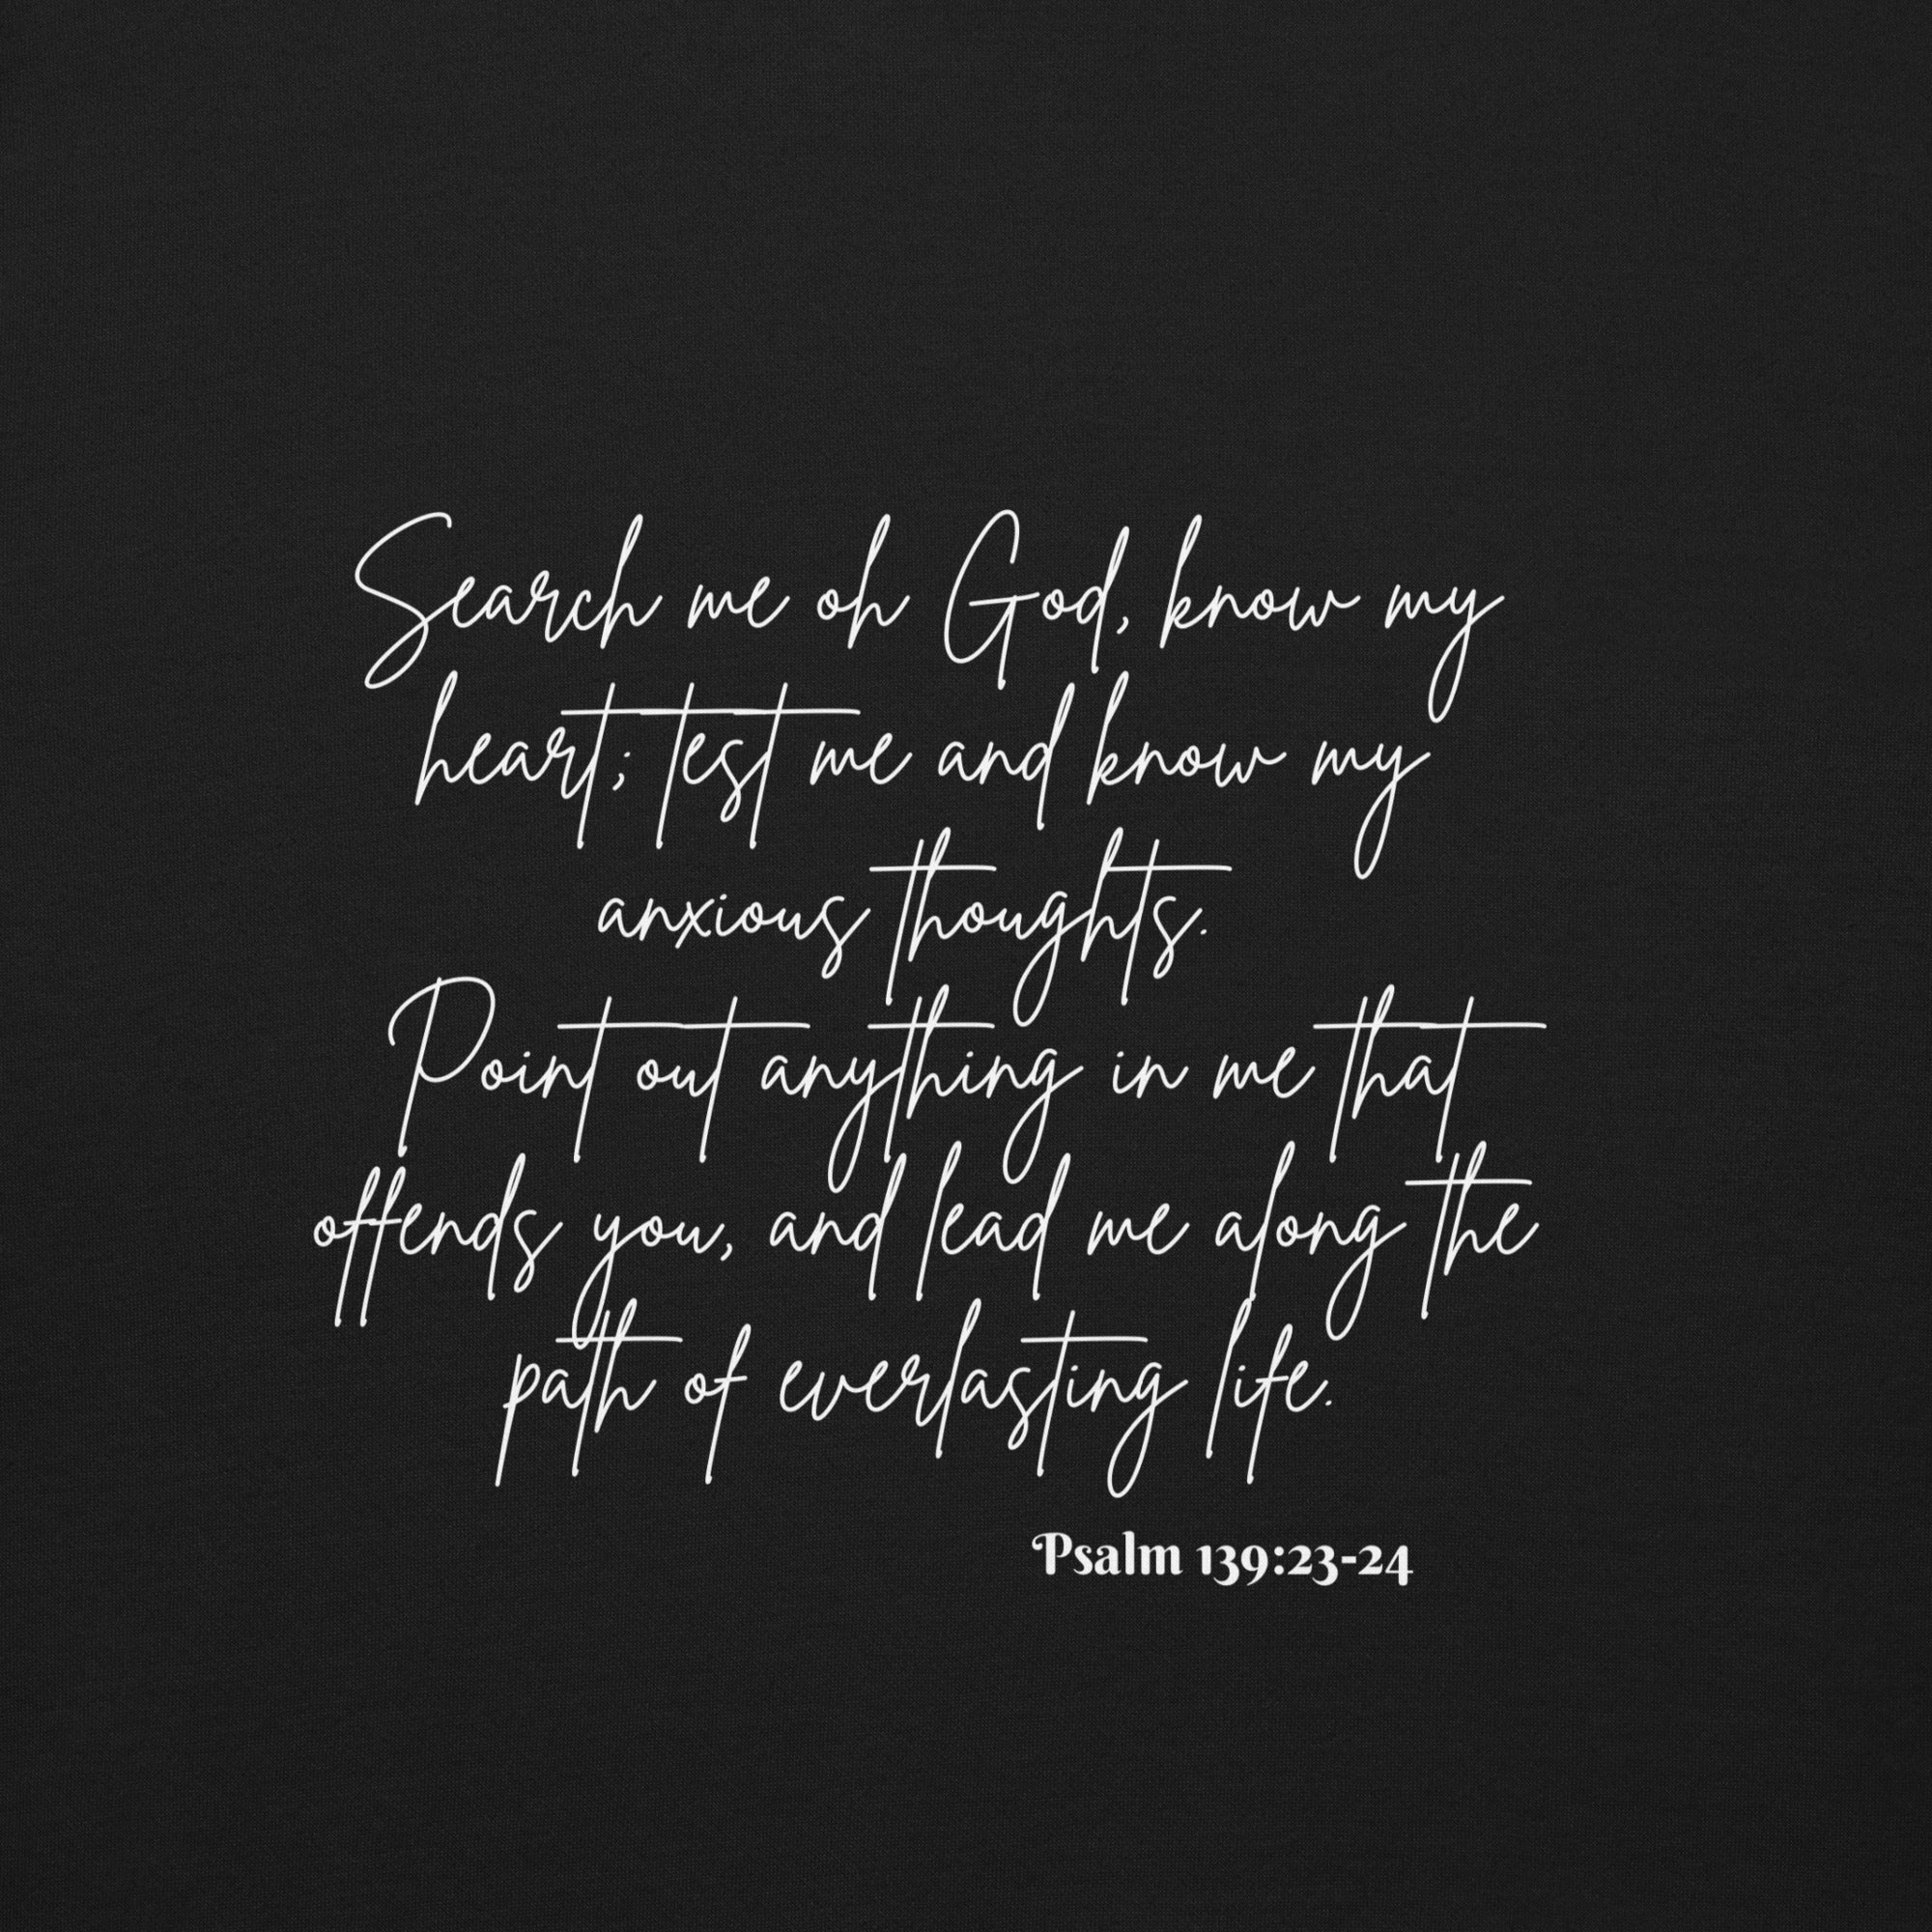 Search me oh God, know my
heart; test me and know my
anxious thoughts.
Point out anything in me that
offends you, and lead me along the
path of everlasting life.
Psalm 139:23-24